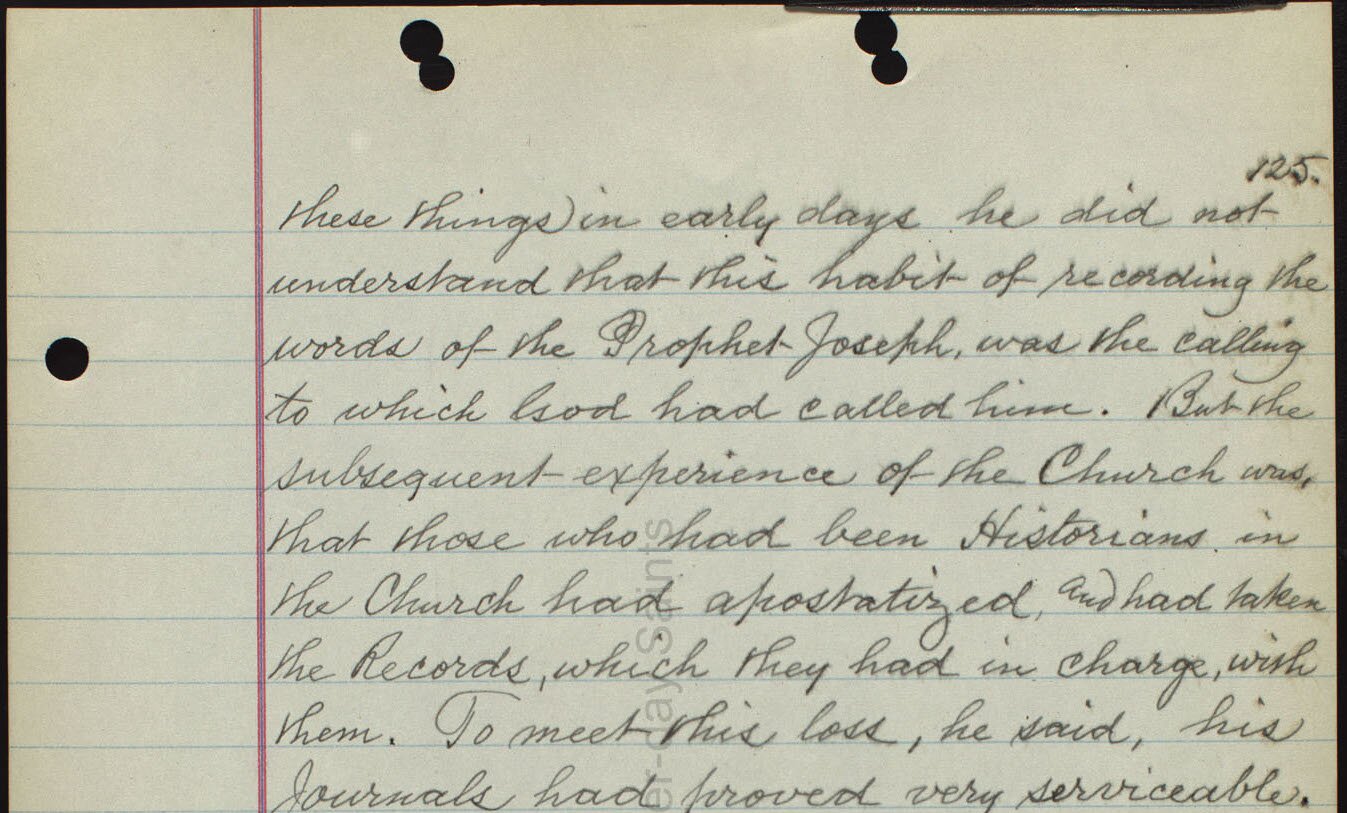 125.
these things) in early days he did not
understand that this habit of recording the
words of the Prophet Joseph, was the calling
to which God had called him. But the
subsequent experience of the Church was,
that those who had been Historians in
the Church had apostatized, and had taken
the Records, which they had in charge, with
them. To meet this loss, he said, his
Journals had proved very serviceable.
er-day Saints